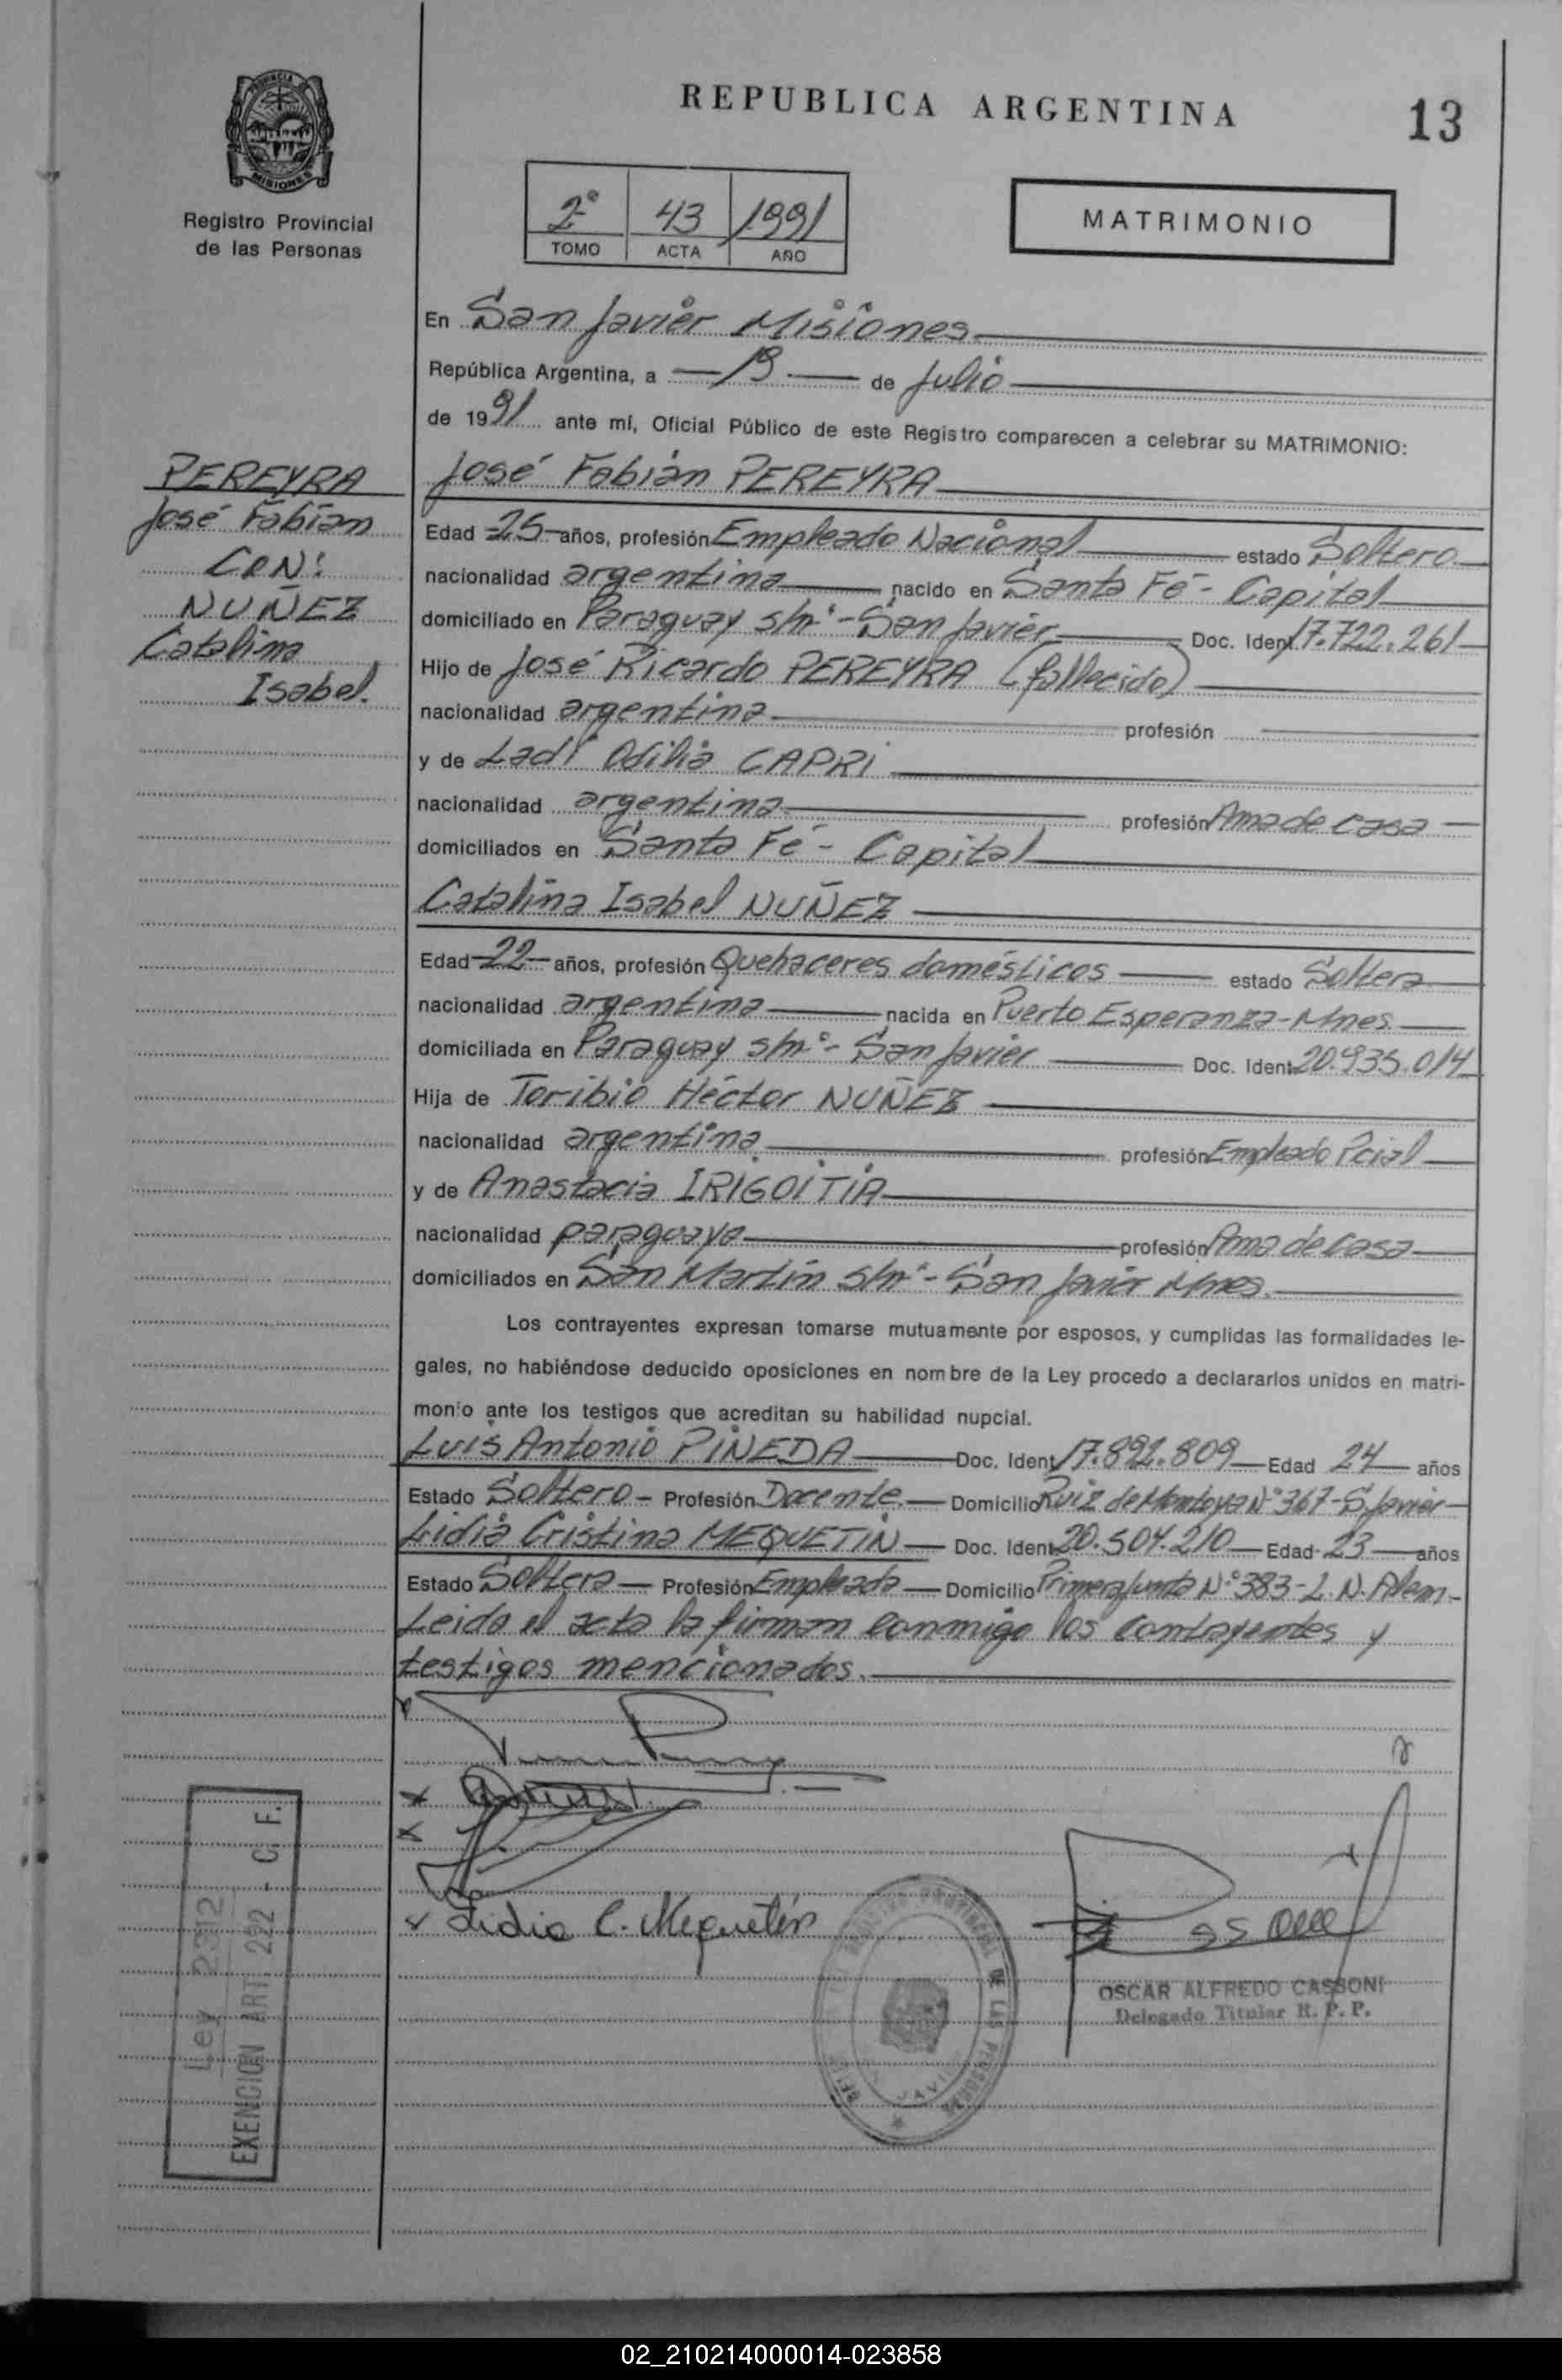 REPUBLICA ARGENTINA
13
MISIONES
Registro Provincial
de las Personas
2º 43 1991
TOMO ACTA AÑO
MATRIMONIO
En San Javier Misiones
República Argentina, a 19 de Julio
de 1991 ante mí, Oficial Público de este Registro comparecen a celebrar su MATRIMONIO:
PEREYRA
José Fabián
CON:
NUÑEZ
Catalina
Isabel.
José Fabián PEREYRA
Edad 25 años, profesión Empleado Nacional estado Soltero
nacionalidad argentina nacido en Santa Fé - Capital
domiciliado en Paraguay s/nº - San Javier Doc. Ident. 17.722.261
Hijo de José Ricardo PEREYRA (fallecido)
nacionalidad argentina profesión
y de Ladí Odilia CAPRI
nacionalidad argentina profesión Ama de casa
domiciliados en Santa Fé - Capital
Catalina Isabel NUÑEZ
Edad 22 años, profesión Quehaceres domésticos estado Soltera
nacionalidad argentina nacida en Puerto Esperanza - Mnes.
domiciliada en Paraguay s/nº - San Javier Doc. Ident. 20.935.014
Hija de Toribio Héctor NUÑEZ
nacionalidad argentina profesión Empleado Pcial
y de Anastacia IRIGOITIA
nacionalidad paraguaya profesión Ama de casa
domiciliados en San Martín s/nº - San Javier Mnes.
Los contrayentes expresan tomarse mutuamente por esposos, y cumplidas las formalidades le-
gales, no habiéndose deducido oposiciones en nombre de la Ley procedo a declararlos unidos en matri-
monio ante los testigos que acreditan su habilidad nupcial.
Luis Antonio PINEDA Doc. Ident. 17.892.809 Edad 24 años
Estado Soltero - Profesión Docente Domicilio Ruiz de Montoya Nº 367 - S. Javier
Lidia Cristina MEQUETIN Doc. Ident. 20.504.210 Edad 23 años
Estado Soltera Profesión Empleada Domicilio Primera Junta Nº 383 - L. N. Alem -
Leida el acta la firman conmigo los contrayentes y
testigos mencionados.
Lidia C. Mequetín
OSCAR ALFREDO CASSONI
Delegado Titular R. P. P.
Ley 2312
EXENCION ART. 222 - C. F.
02_210214000014-023858